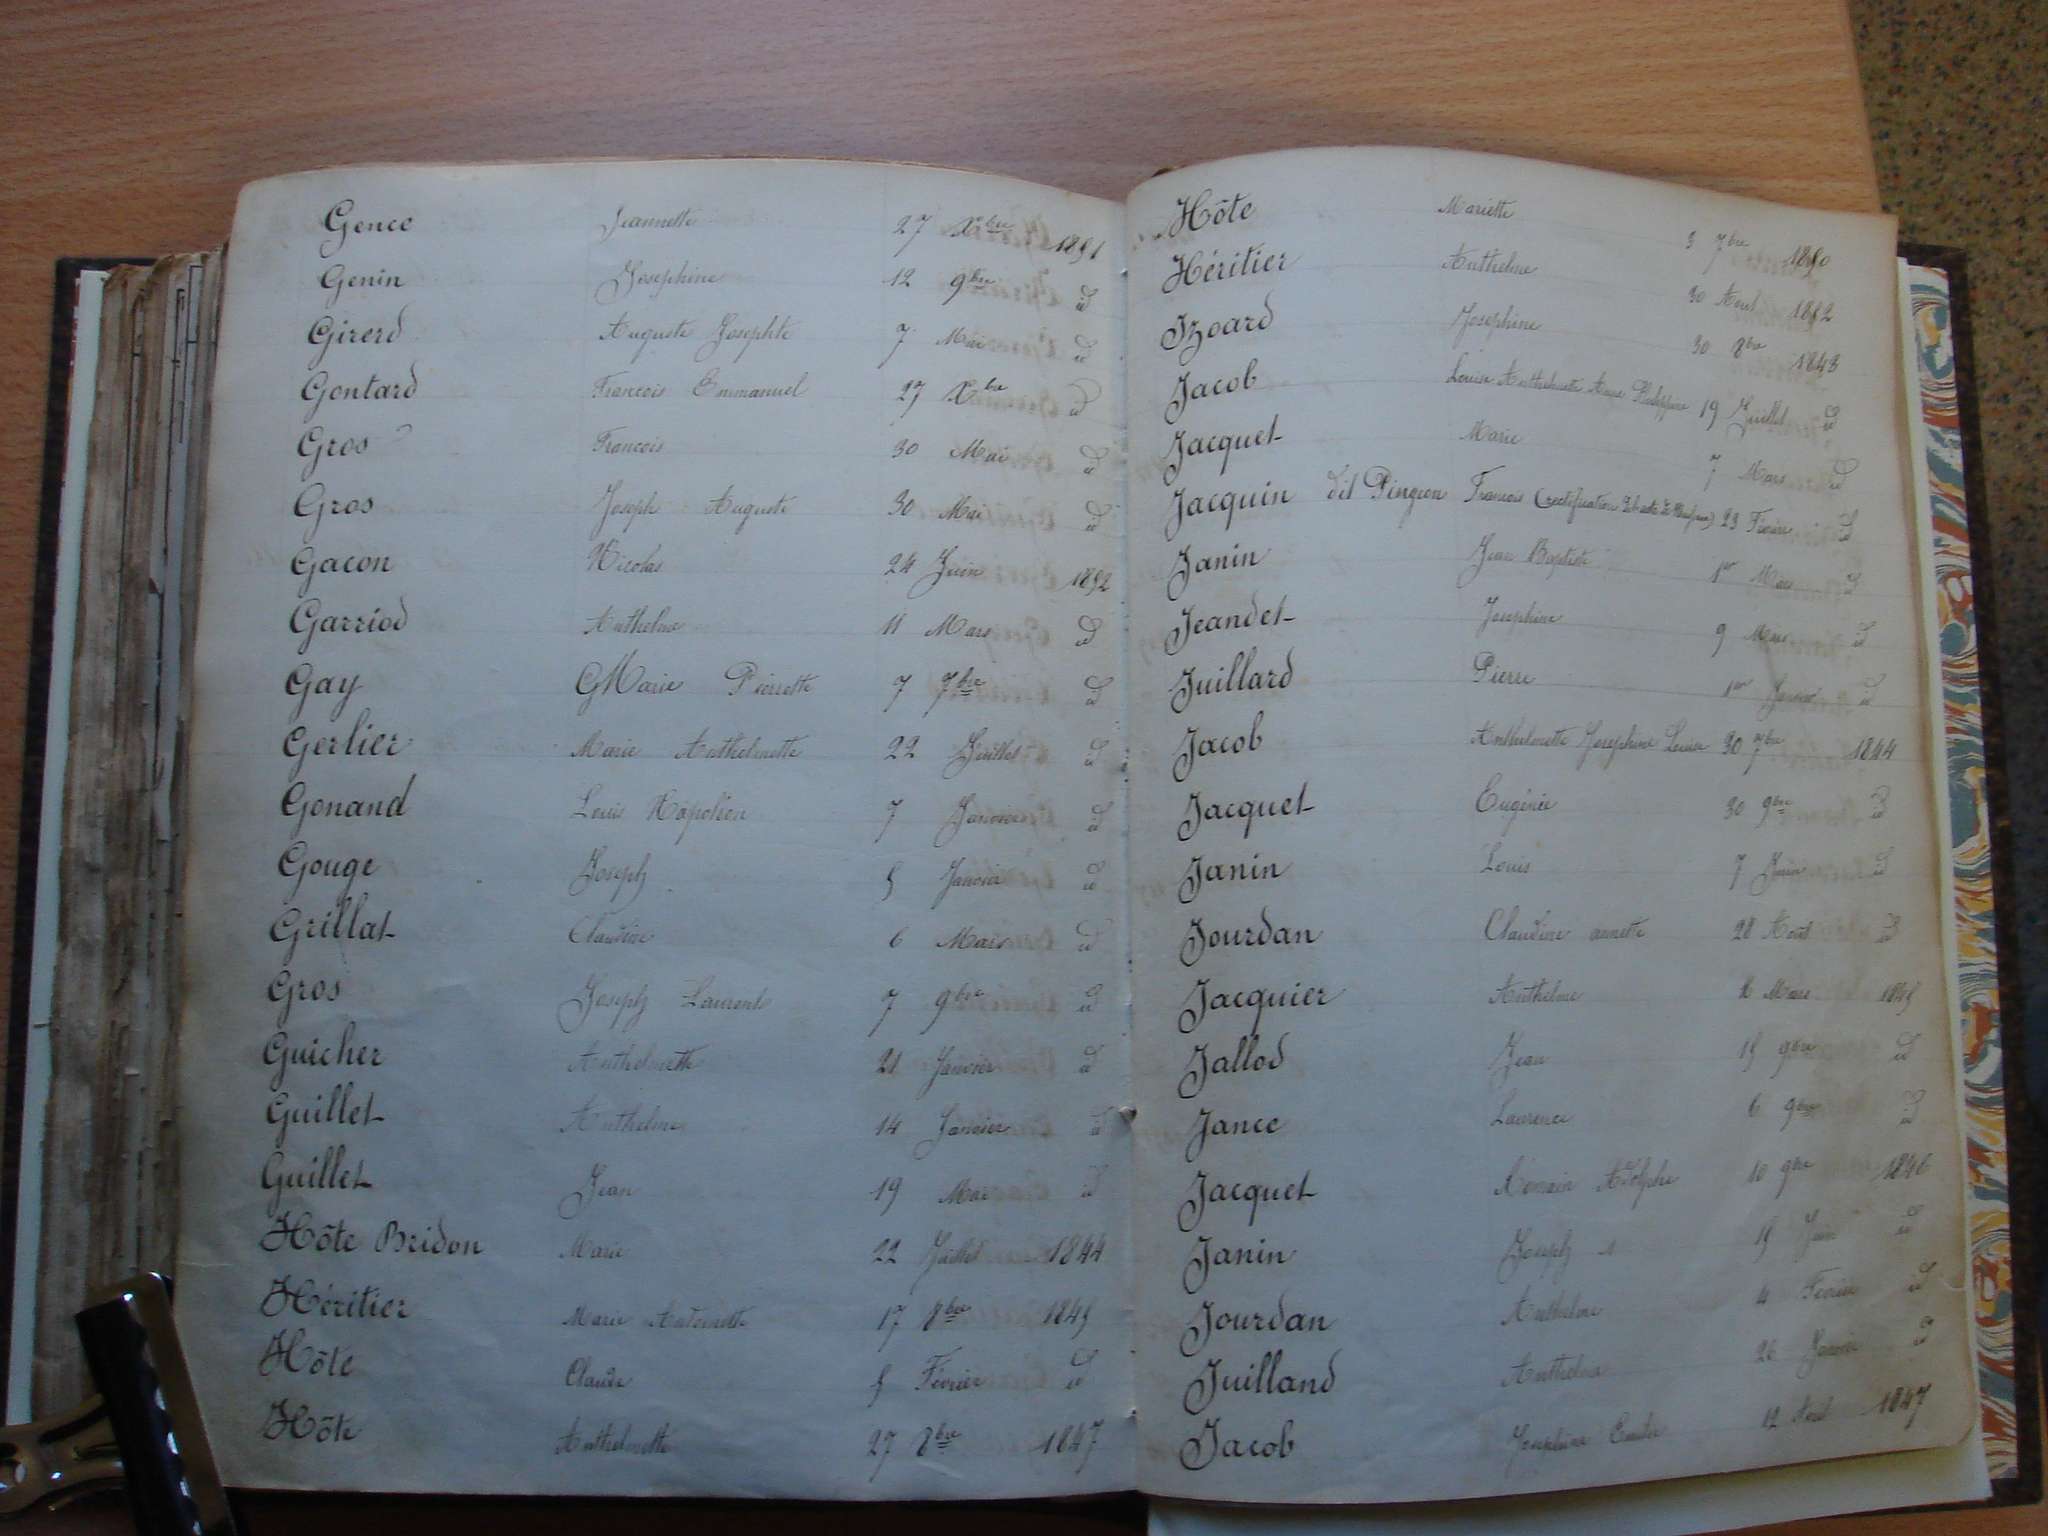 Gence Jeannette 27 Xbre 1851
Genin Josephine 12 9bre id
Girerd Auguste Josephte 7 Mai id
Gontard Francois Emmanuel 27 Xbre id
Gros Francois 30 Mai id
Gros Joseph Auguste 30 Mai id
Gacon Nicolas 24 Juin 1852
Garriod Anthelme 11 Mars id
Gay Marie Pierrette 7 7bre id
Gerlier Marie Anthelmette 22 Juillet id
Gonand Louis Napoléon 7 Janvier id
Gouge Joseph 5 Janvier id
Grillat Claudine 6 Mars id
Gros Joseph Laurent 7 9bre id
Guicher Anthelmette 21 Janvier id
Guillet Anthelme 14 Janvier id
Guillet Jean 19 Mai id
Hôte Bridon Marie 22 Juillet 1844
Héritier Marie Antoinette 17 8bre 1845
Hôte Claude 5 Février id
Hôte Anthelmette 27 8bre 1847
Hôte Mariette 3 7bre 1850
Héritier Anthelme 30 Aout 1852
Izoard Josephine 30 8bre 1843
Jacob Louise Anthelmette Philippine 19 Juillet id
Jacquet Marie 7 Mars id
Jacquin dit Pingeon Francois (rectification 23 Février id
Janin Jean Baptiste 1er Mars id
Jeandet Josephine 9 Mars id
Juillard Pierre 1er Janvier id
Jacob Anthelmette Josephine Louise 30 7bre 1844
Jacquet Eugénie 30 9bre id
Janin Louis 7 Juin id
Jourdan Claudine annette 28 Aout id
Jacquier Anthelme Mars 1845
Jallod Jean 15 9bre id
Jance Laurence 6 9bre id
Jacquet Romain Adolphe 10 9bre 1846
Janin Joseph 15 Juin id
Jourdan Anthelme 4 Février id
Juilland Anthelme 26 Janvier id
Jacob Josephine 12 Aout 1847